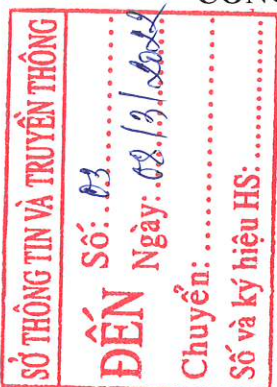 SỞ THÔNG TIN VÀ TRUYỀN THÔNG
ĐẾN
Số: 03
Ngày: 02/3/2022
Chuyển:
Số và ký hiệu HS: